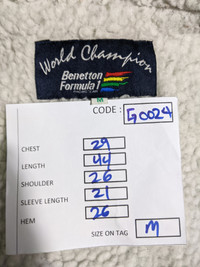 World Champion
Benetton
Formula 1
M
CODE : G0024
CHEST 29
LENGTH 44
SHOULDER 26
SLEEVE LENGTH 21
HEM 26
SIZE ON TAG M